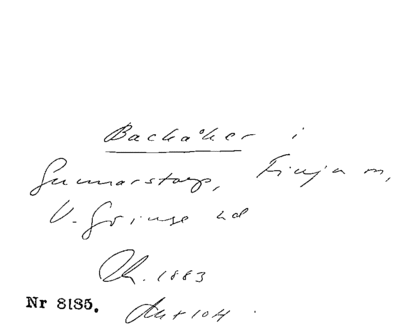 Backåker i
Gunnarstorp, Finja m,
V. Göinge hd
Ak. 1883
Nr 8135. Akt 104.